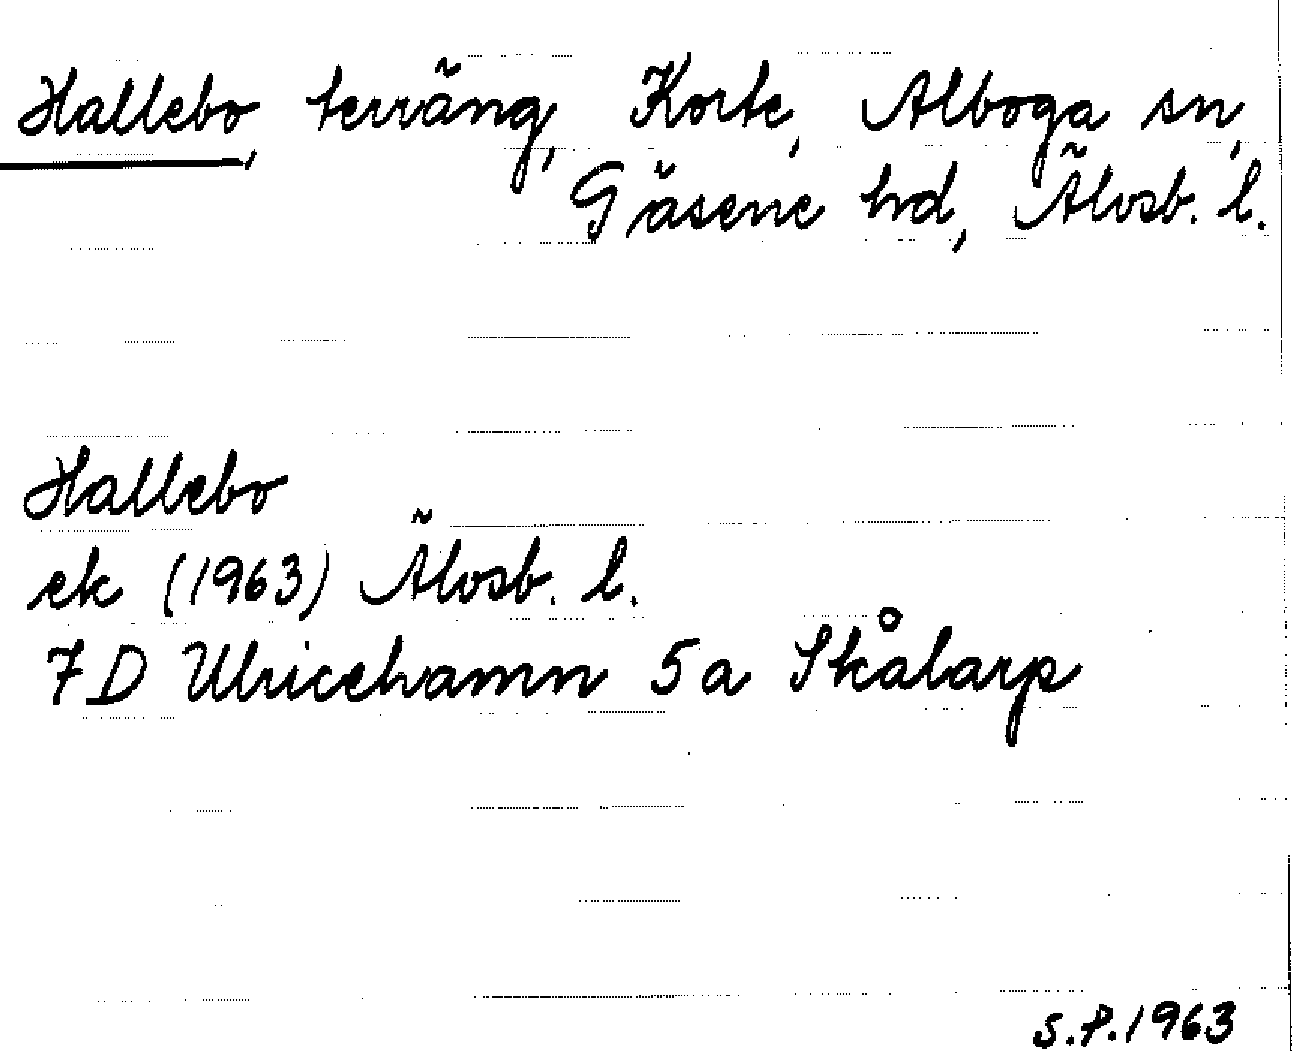 Hallebo, terräng, Korte, Alboga sn,
Gäsene hd, Älvsb. l.
Hallebo
ek (1963) Älvsb. l.
7D Ulricehamn 5a Skålarp
S.P. 1963